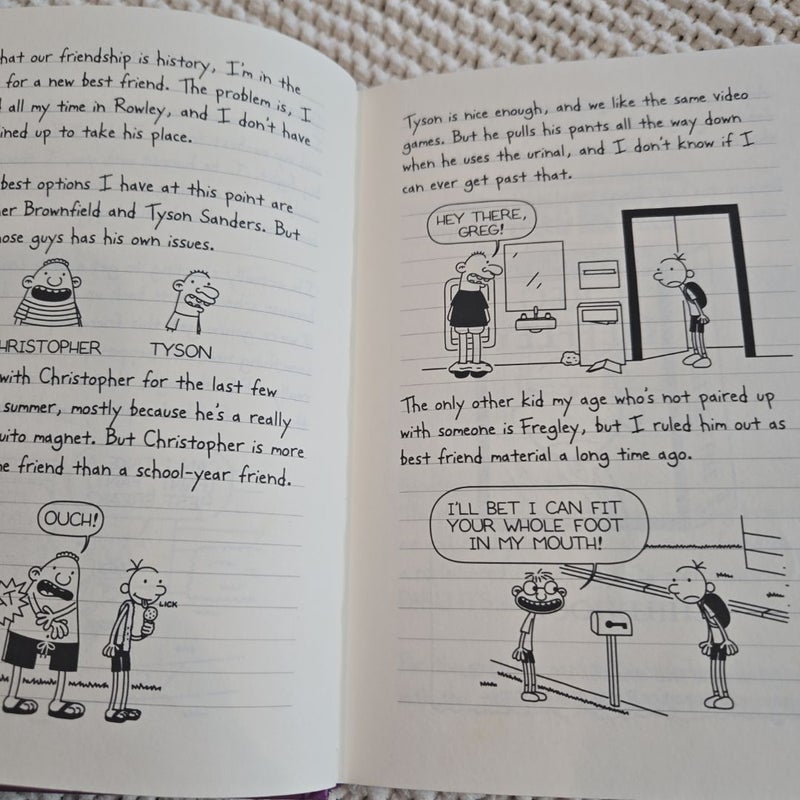 hat our friendship is history, I'm in the
for a new best friend. The problem is, I
all my time in Rowley, and I don't have
ined up to take his place.
best options I have at this point are
er Brownfield and Tyson Sanders. But
ose guys has his own issues.
HRISTOPHER
TYSON
with Christopher for the last few
summer, mostly because he's a really
uito magnet. But Christopher is more
e friend than a school-year friend.
OUCH!
LICK
Tyson is nice enough, and we like the same video
games. But he pulls his pants all the way down
when he uses the urinal, and I don't know if I
can ever get past that.
HEY THERE,
GREG!
The only other kid my age who's not paired up
with someone is Fregley, but I ruled him out as
best friend material a long time ago.
I'LL BET I CAN FIT
YOUR WHOLE FOOT
IN MY MOUTH!